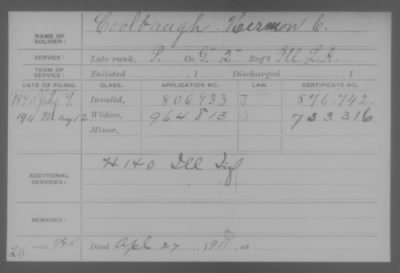 NAME OF SOLDIER: Coolbaugh, Hermon C.
SERVICE: Late rank, P. Co. G 2 Reg't Ill L.A.
TERM OF SERVICE: Enlisted , 1 Discharged , 1
DATE OF FILING. CLASS. APPLICATION NO. LAW. CERTIFICATE NO.
1890 July 9. Invalid, 806933 J 576.742.
1911 May 12 Widow, 964813 733316
Minor,
ADDITIONAL SERVICES: H 140 Ill Inf
REMARKS:
Died Apl 27, 1911, at